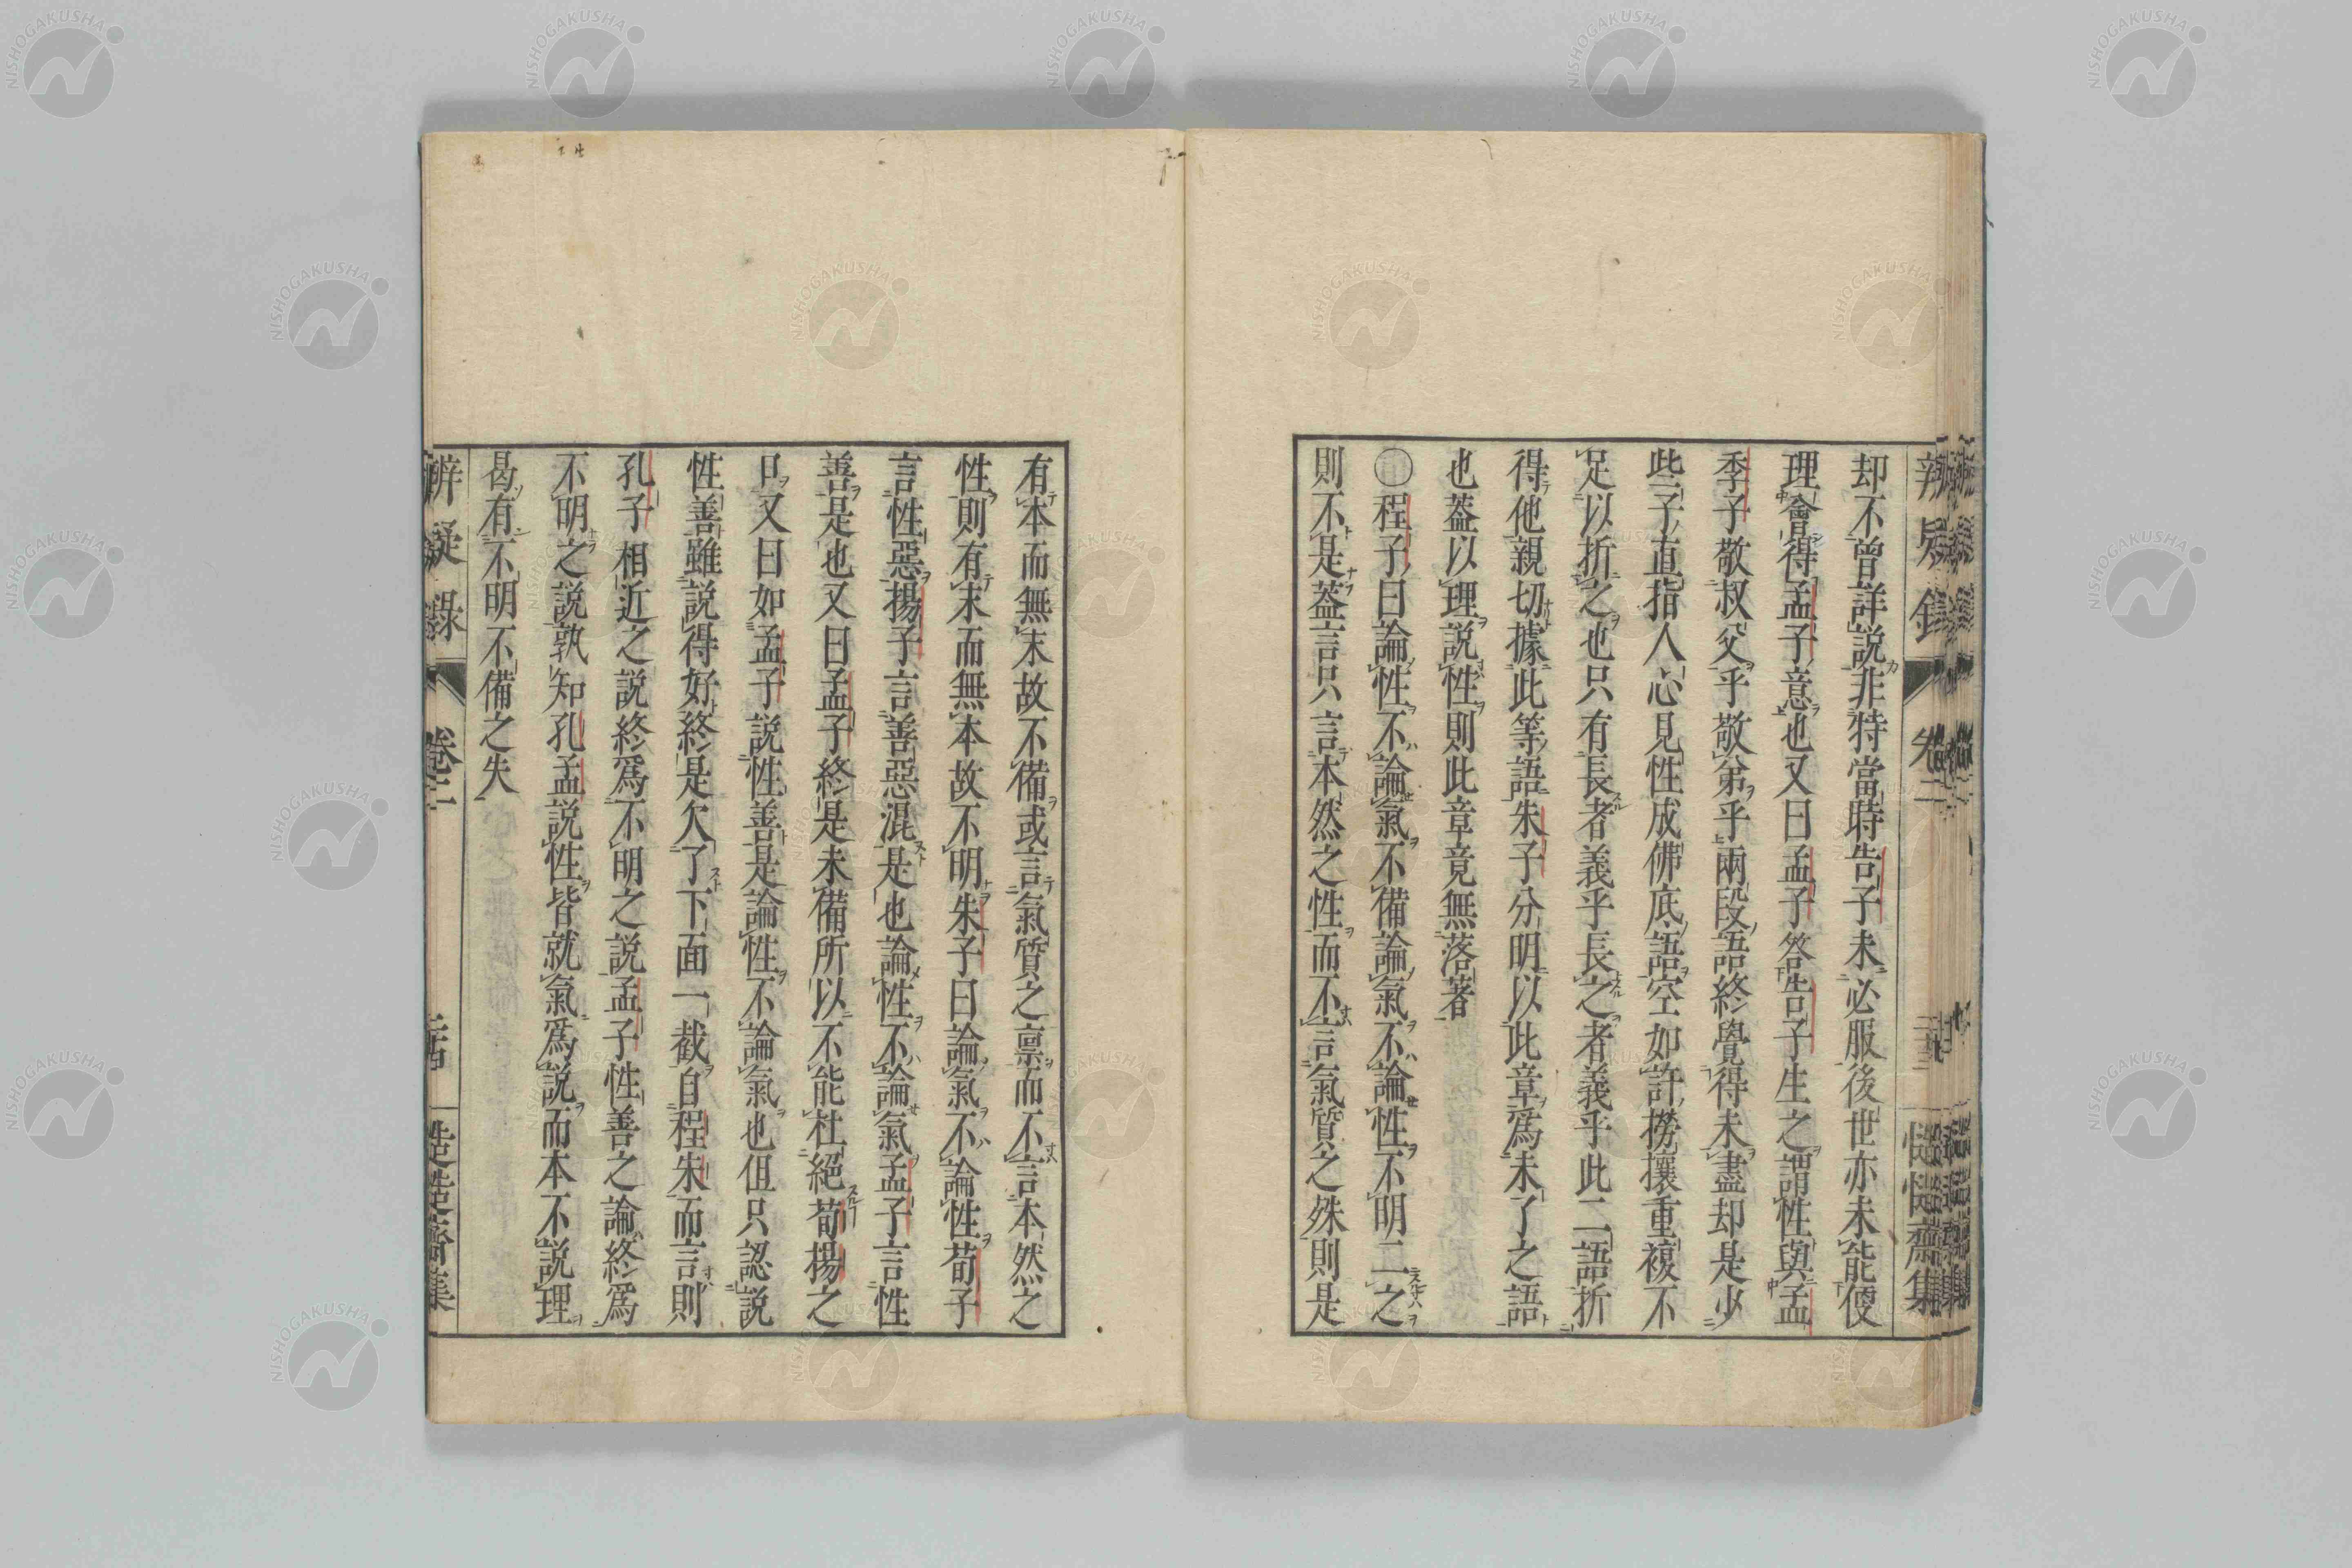 却不曾詳説非特當時告子未必服後世亦未能便
理會得孟子意也又曰孟子答告子生之謂性與孟
季子敬叔父乎敬弟乎兩段語終覺得未盡却是少
些子直指人心見性成佛底語空如許撈攘重複不
足以折之也只有長者義乎長之者義乎此二語折
得他親切據此等語朱子分明以此章爲未了之語
也蓋以理説性則此章竟無落著
程子曰論性不論氣不備論氣不論性不明二之
則不是蓋言只言本然之性而不言氣質之殊則是
有本而無末故不備或言氣質之禀而不言本然之
性則有末而無本故不明朱子曰論氣不論性荀子
言性惡揚子言善惡混是也論性不論氣孟子言性
善是也又曰孟子終是未備所以不能杜絕荀揚之
口又曰如孟子説性善是論性不論氣也但只認説
性善雖説得好終是欠了下面一截自程朱而言則
孔子相近之説終爲不明之説孟子性善之論終爲
不明之説孰知孔孟説性皆就氣爲説而本不説理
曷有不明不備之失
辨疑錄
卷二
慥慥齋集
NISHOGAKUSHA